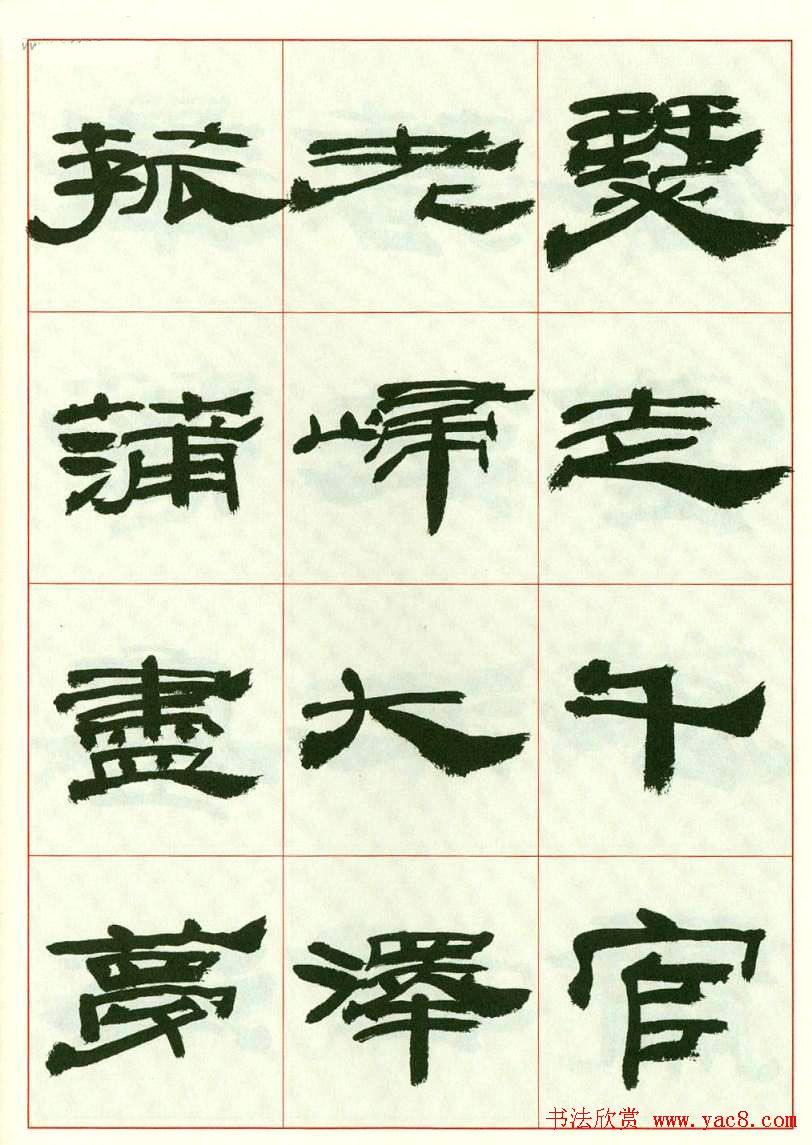 瑟走千官
老歸大澤
菰蒲盡夢
书法欣赏 www.yac8.com